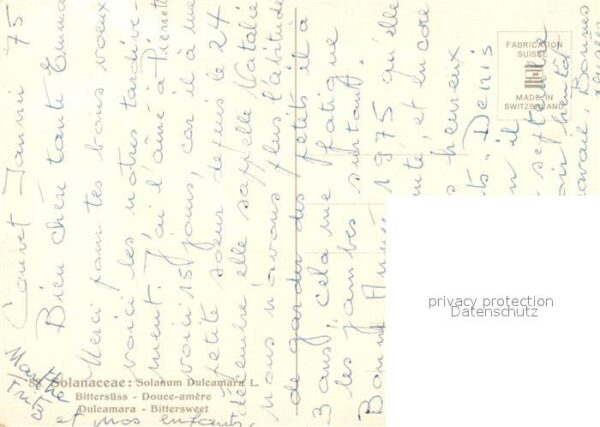 Couvet Janvier 75
Bien chère tante Emma
Merci pour tes bons vœux
voici les nôtres tardive-
ment. J'ai l'aîné à Pierrette
voici 15 jours, car il a une
petite sœur depuis le 24
décembre elle s'appelle Natalie
nous n'avons plus l'habitude
de garder des petits il a
3 ans, cela me fatigue
les jambes surtout.
Bonne Année 1975 qu'elle
santé, et encore
heureux
Denis
il
bientôt
travail. Bonnes
Marthe
et nos enfants.
88. Solanaceae: Solanum Dulcamara L.
Bittersüss - Douce-amère
Dulcamara - Bittersweet
FABRICATION
SUISSE
MADE IN
SWITZERLAND
privacy protection
Datenschutz